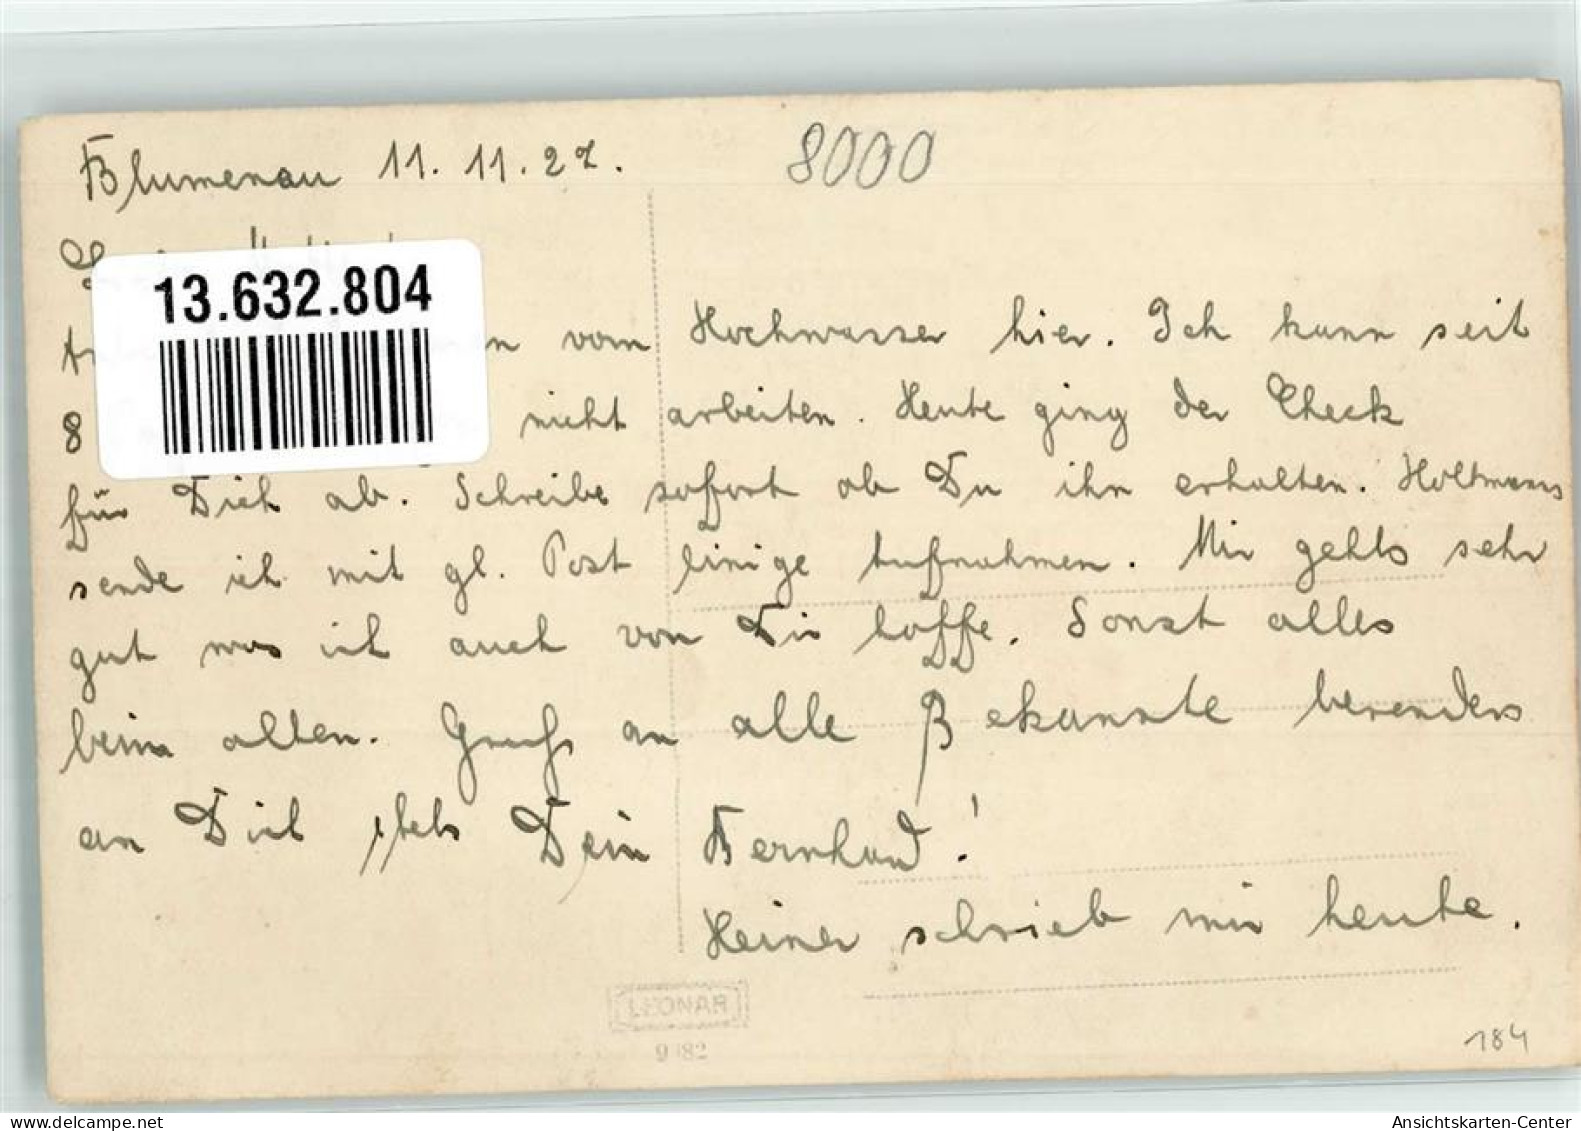 Blumenau 11. 11. 27.
8000
13.632.804
vom Hochwasser hier. Ich kann seit
8 nicht arbeiten. Heute ging der Check
für Dich ab. Schreibe sofort ob Du ihn erhalten. Holtmanns
sende ich mit gl. Post einige Aufnahmen. Mir gehts sehr
gut was ich auch von Dir hoffe. Sonst alles
beim alten. Gruß an alle Bekannte besonders
an Dich stets Dein Bernhard!
Heiner schrieb mir heute.
LEONAR
184
www.delcampe.net
Ansichtskarten-Center